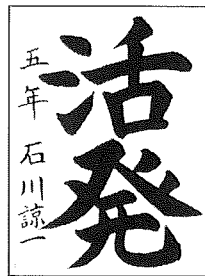 活発
五年 石川諒一